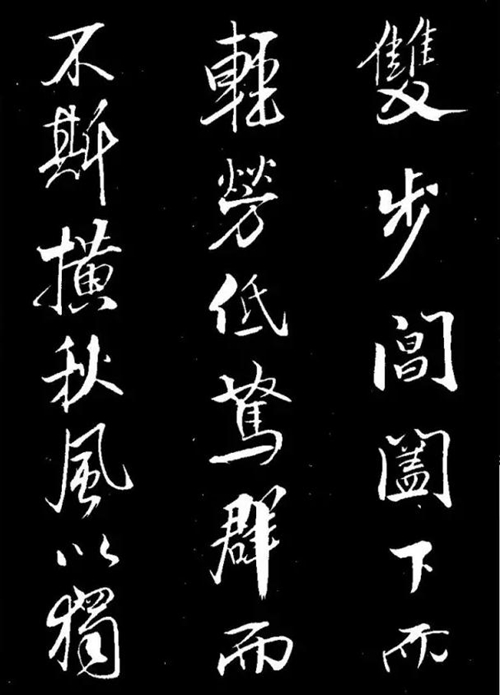 雙步閶闔下而
輕勞低驚群而
不斯橫秋風以獨